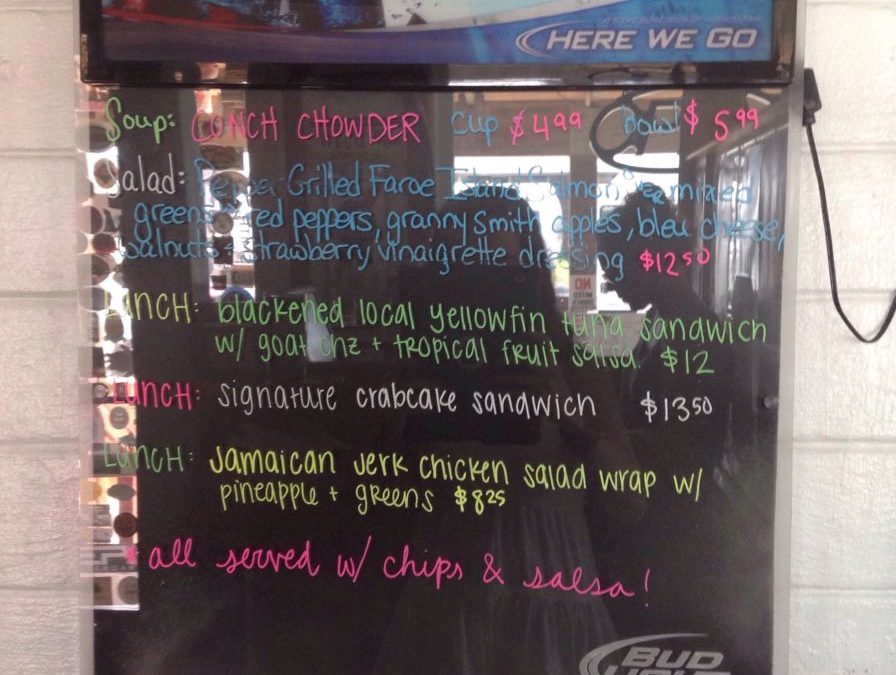 HERE WE GO
Soup: CONCH CHOWDER Cup $4.99 Bowl $5.99
Salad: Pepper-Grilled Faroe Island Salmon, mixed
greens red peppers, granny smith apples, bleu cheese,
walnuts + strawberry vinaigrette dressing $12.50
LUNCH: blackened local yellowfin tuna sandwich
w/ goat chz + tropical fruit salsa. $12
LUNCH: signature crabcake sandwich $13.50
LUNCH: Jamaican Jerk chicken salad wrap w/
pineapple + greens $8.25
* all served w/ chips & salsa!
BUD
LIGHT